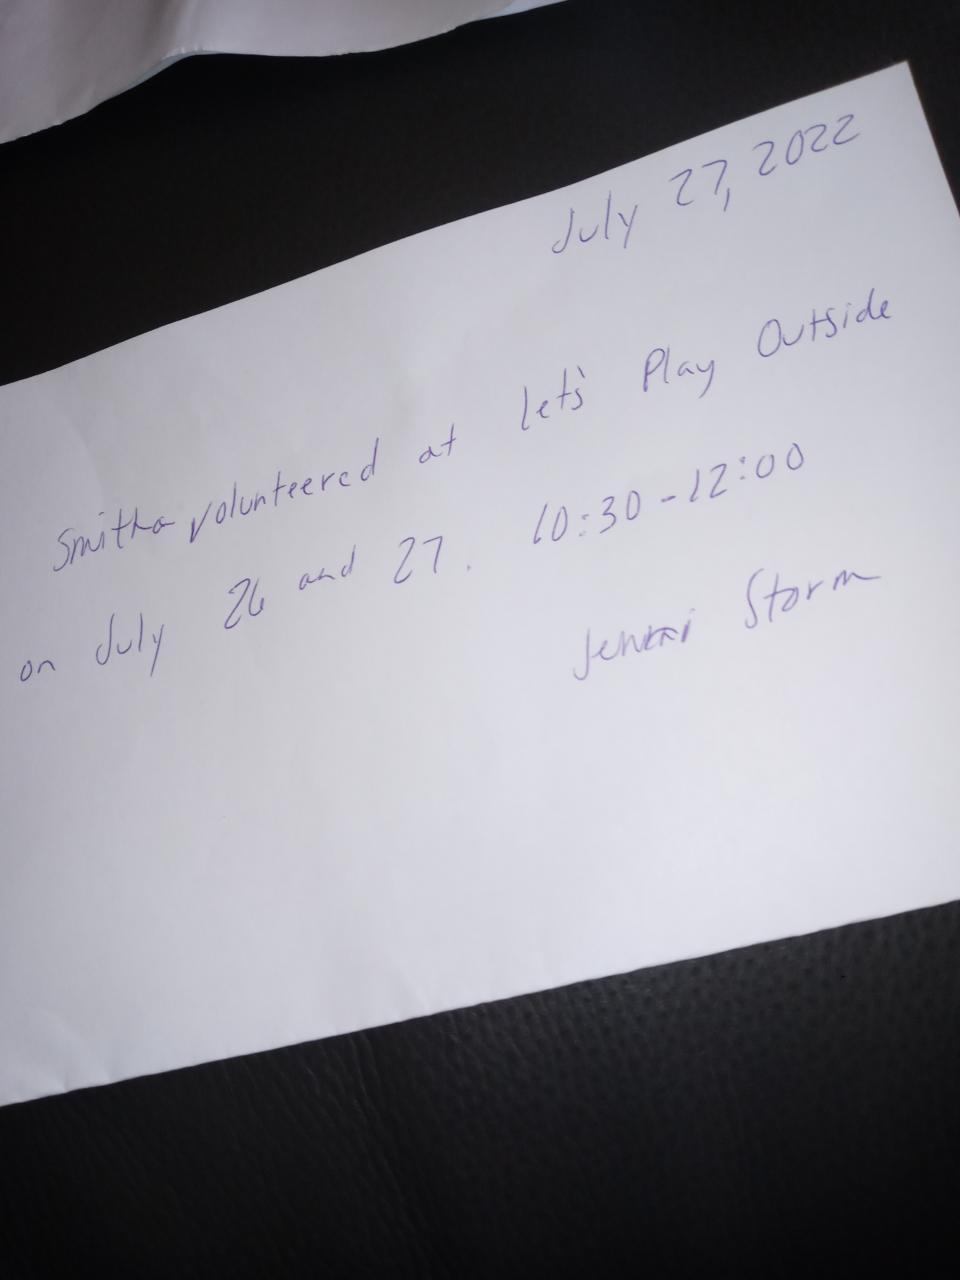 July 27, 2022
Smitha volunteered at Let's Play Outside
on July 26 and 27. 10:30-12:00
Storm